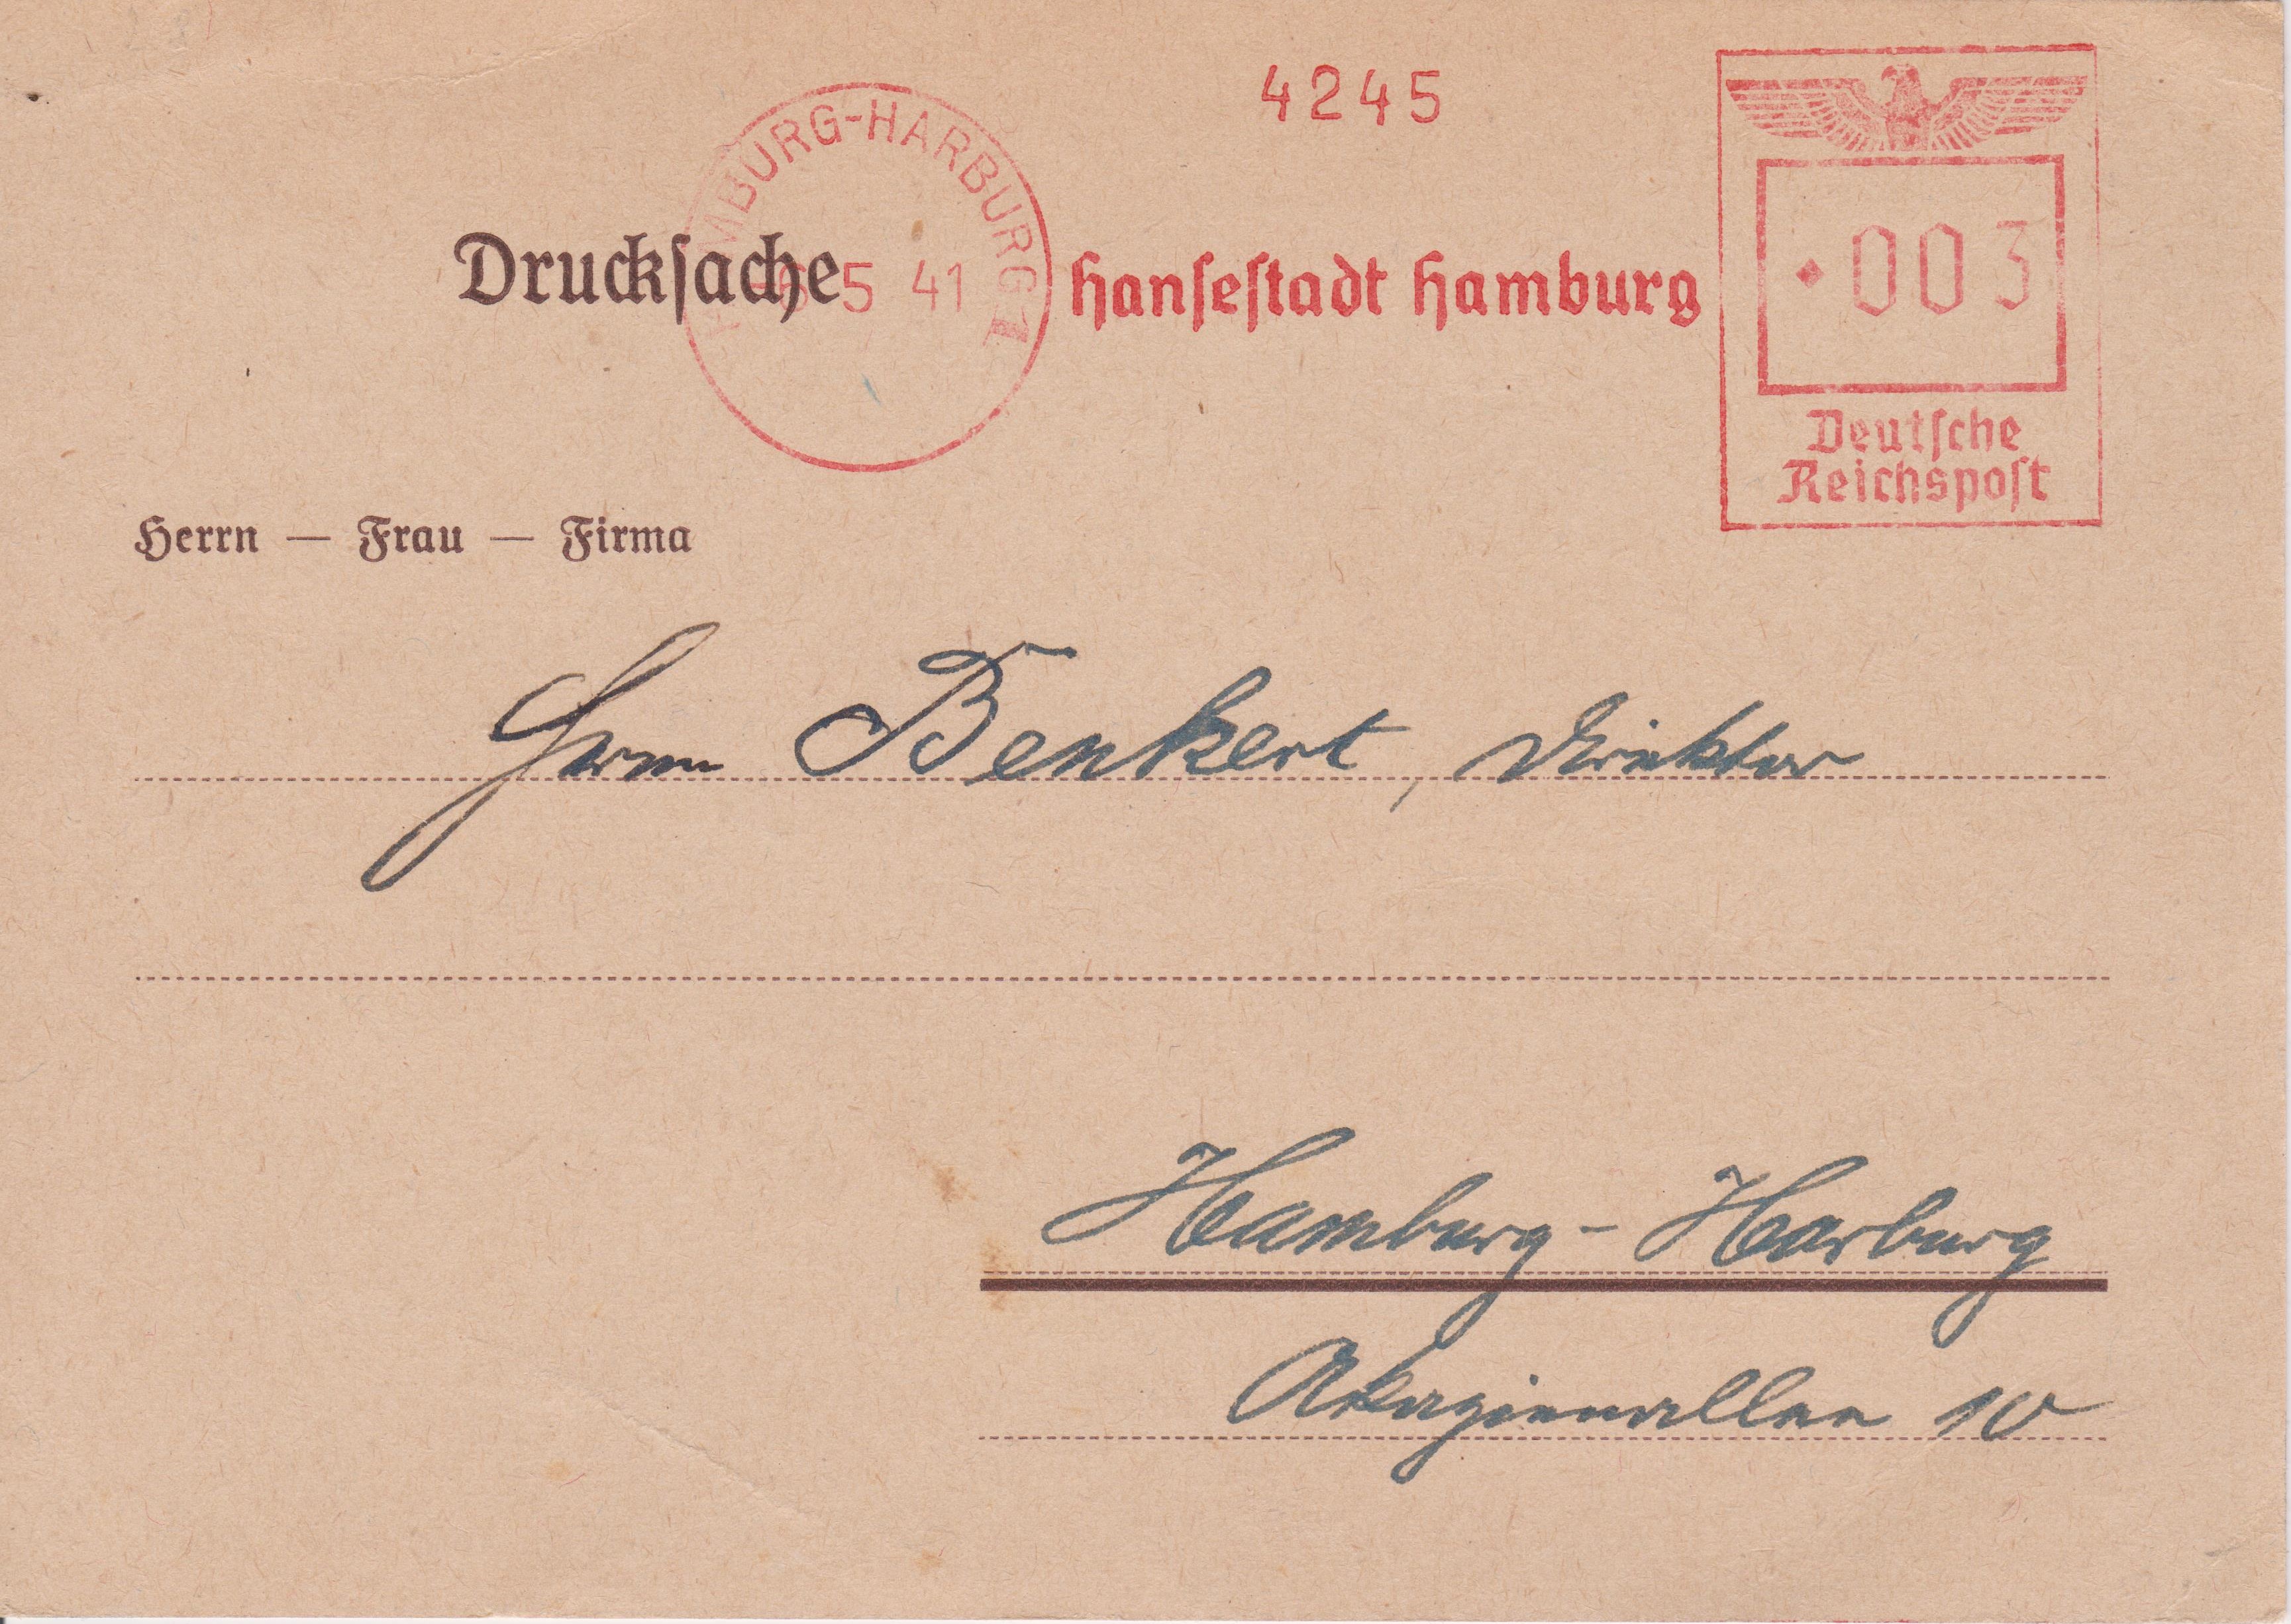 4245
HAMBURG-HARBURG 1
Drucksache
-6.5 41
Hansestadt Hamburg
003
Deutsche
Reichspost
Herrn — Frau — Firma
Herrn Benkert, Direktor
Hamburg-Harburg
Akazienallee 10